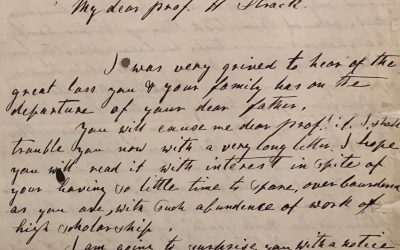 My dear prof. H Strack.
I was very grived to hear of the
great loss you & your family has on the
departure of your dear father.
You will cause me dear prof! if I shall
trouble you now with a very long letter. I hope
you will read it with interest in spite of
your having so little time to spare, over bourdened
as you are, with such abundence of work of
high scholarship.
I am going to surprise you with a notice